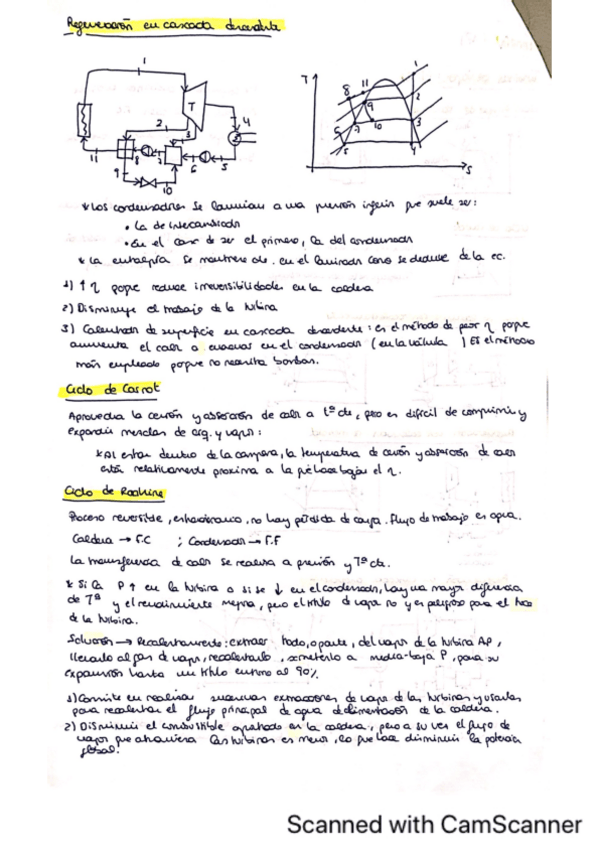 Regeneración en cascada descendente
1
T
2
3
4
11
8
7
6
5
9
10
T
8
11
1
9
2
6
7
10
3
5
4
S
* Los condensadores se laminan a una presión inferior que suele ser:
• La de intercambiador
• En el caso de ser el primero, la del condensador
* La entalpía se mantiene cte. en el laminado como se deduce de la ec.
1) ↑ η porque reduce irreversibilidades en la caldera
2) Disminuye el trabajo de la turbina
3) Calentador de superficie en cascada descendente: es el método de peor η porque
aumenta el calor a evacuar en el condensador (en la válvula ) Es el método
más empleado porque no necesita bombas.
Ciclo de Carnot
Aprovecha la cesión y absorción de calor a tª cte, pero es difícil de comprimir y
expandir mezclas de líq. y vapor:
* Al estar dentro de la campana, la temperatura de cesión y absorción de calor
están relativamente próxima a la bajar el η.
Ciclo de Rankine
Proceso reversible, no hay pérdida de carga. Flujo de trabajo es agua.
Caldera → F.C ; Condensador → F.F
La transferencia de calor se realiza a presión y Tª cte.
* Si la P ↑ en la turbina o si se ↓ en el condensador, hay una mayor diferencia
de Tª y el rendimiento mejora, pero el título de vapor no y es peligroso para el
de la turbina.
Solución → Recalentamiento: extraer todo, o parte, del vapor de la turbina AP,
llevarlo al gen de vapor, recalentarlo, someterlo a media-baja P, para su
expansión hasta un título entorno al 90%.
1) Consite en realizar sucesivas extracciones de vapor de las turbinas y usarlas
para recalentar el flujo principal de agua de alimentación de la caldera.
2) Disminuir el combustible aportado en la caldera, pero a su vez el flujo de
vapor que atraviesa las turbinas es menor, lo que hace disminuir la potencia
global.
Scanned with CamScanner